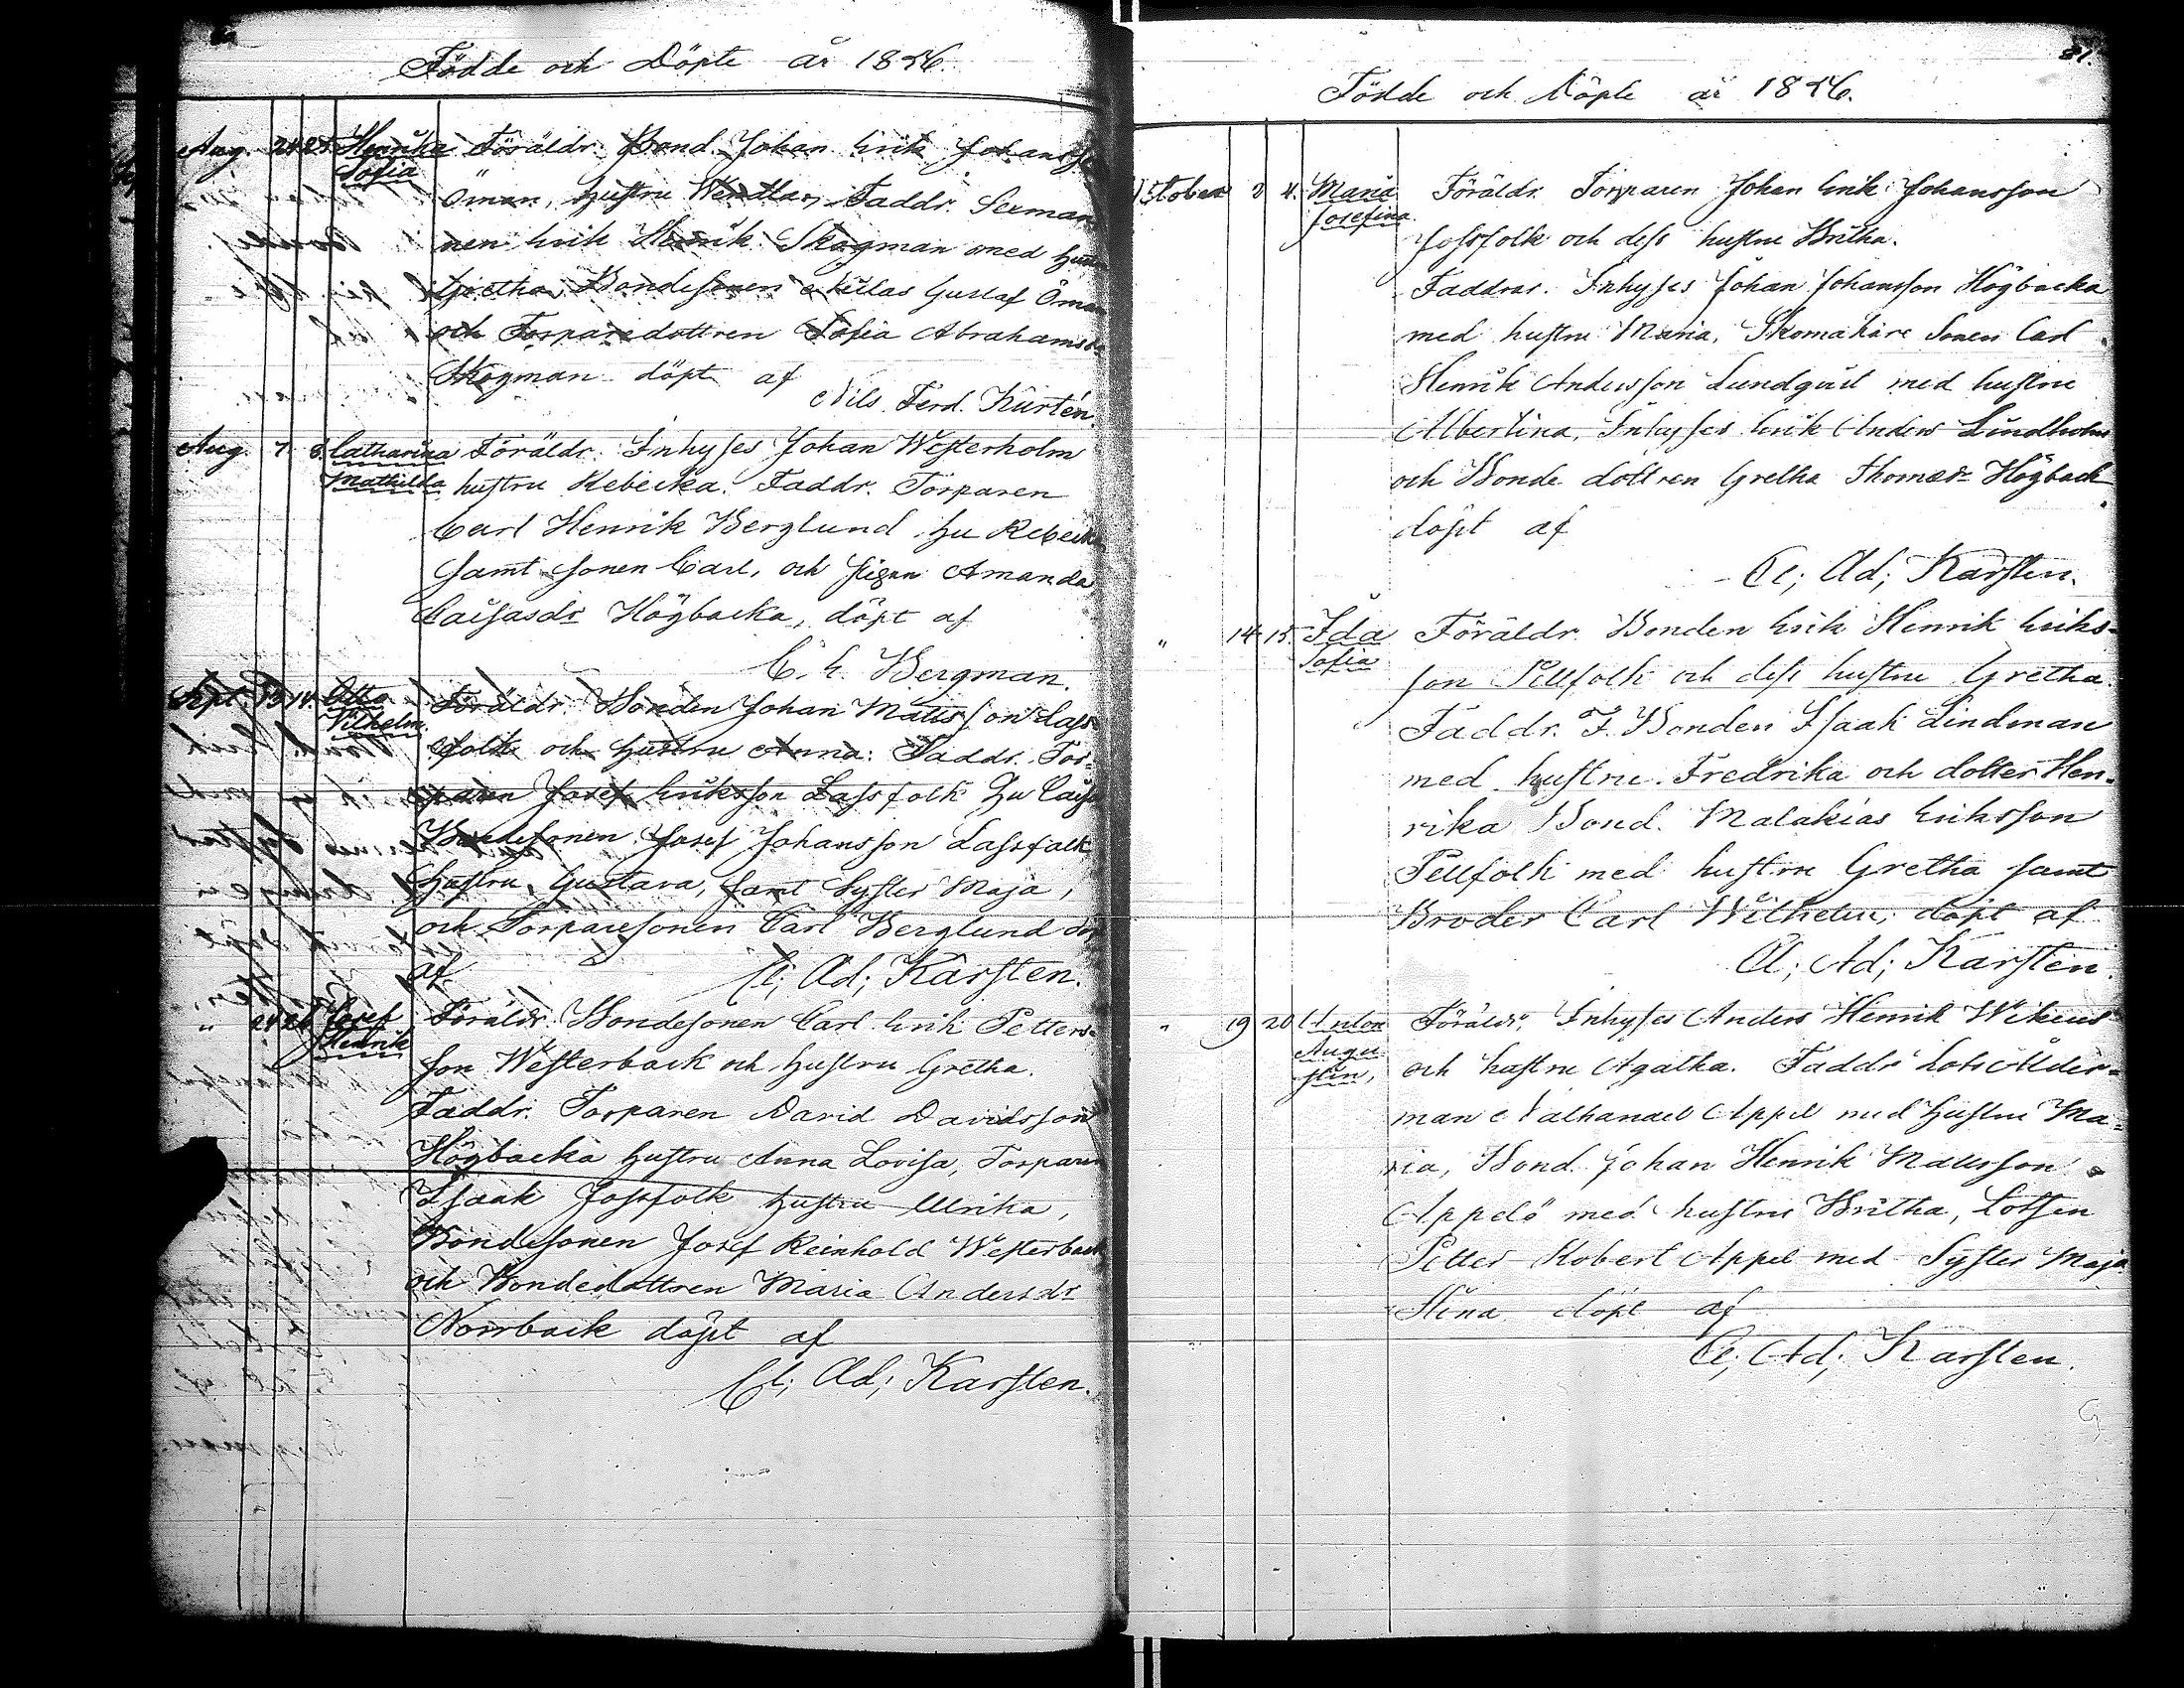 Födde och Döpte år 1856.
Aug. 24 25 Henrika Föräldr. Bond. Johan Erik Johansso
Sofia
Öman, hustru Wendla, Faddr. Sexman
nen Erik Henrik Skogman med hustru
Gretha, Bondesonen Niklas Gustaf Öman
och Torparedottren Sofia Abrahamsdr
Skogman döpt af
Nils Ferd. Kurtén.
Aug. 7. 8. Catharina Föräldr. Inhyses Johan Westerholm
Mathilda hustru Rebecka. Faddr. Torparen
Carl Henrik Berglund Hu Rebecka
samt sonen Carl, och pigan Amanda
Caisasdr Högbacka, döpt af
C. E. Bergman.
Sept. 13 14. Otto Föräldr. Bonden Johan Matts son Lass
Vilhelm. folk och hustru Anna. Faddr. Tor-
paren Josef Eriksson Lassfolk Hu Caisa
Bondesonen Josef Johansson Lassfolk
Hustru Gustava, samt Syster Maja,
och Torparesonen Carl Berglund döp
af Cl; Ad; Karsten.
" Josef Föräldr. Bondesonen Carl Erik Petters-
Henrik
son Westerback och hustru Gretha.
Faddr. Torparen David Davidsson
Högbacka hustru Anna Lovisa, Torparen
Isaak Jossfolk hustru Ulrika,
Bondesonen Josef Reinhold Westerback
och Bondedottren Maria Andersdr
Norrback döpt af
Cl; Ad; Karsten.
81.
Födde och Döpte år 1856.
October 3 4. Maria Föräldr. Torparen Johan Erik Johansson
Josefina. Jossfolk och dess hustru Britha.
Faddrar. Inhyses Johan Johansson Högbacka
med hustru Maria, Skomakare Sonen Carl
Henrik Andersson Lundqvist med hustru
Albertina, Inhyses Erik Anders Lindholm
och Bonde dottren Gretha Thomasdr Högback
döpt af
Cl; Ad; Karsten.
" 14. 15. Ida Föräldr. Bonden Erik Henrik Eriks-
Sofia son Pellfolk och dess hustru Gretha.
Faddr. F. Bonden Isaak Lindman
med hustru Fredrika och dotter Hen-
rika Bond. Malakias Eriksson
Pellfolk med hustru Gretha samt
Broder Carl Wilhelm, döpt af
Cl; Ad; Karsten.
" 19 20 Anton Föräldr. Inhyses Anders Henrik
Augu
stin, och hustru Agatha. Faddr Lots Ålder-
man Nathanael Appel med hustru Ma-
ria, Bond. Johan Henrik Mattsson
Appelö med hustru Britha, Lotsen
Petter Robert Appel med Syster Maja
Stina döpt af
Cl; Ad; Karsten.